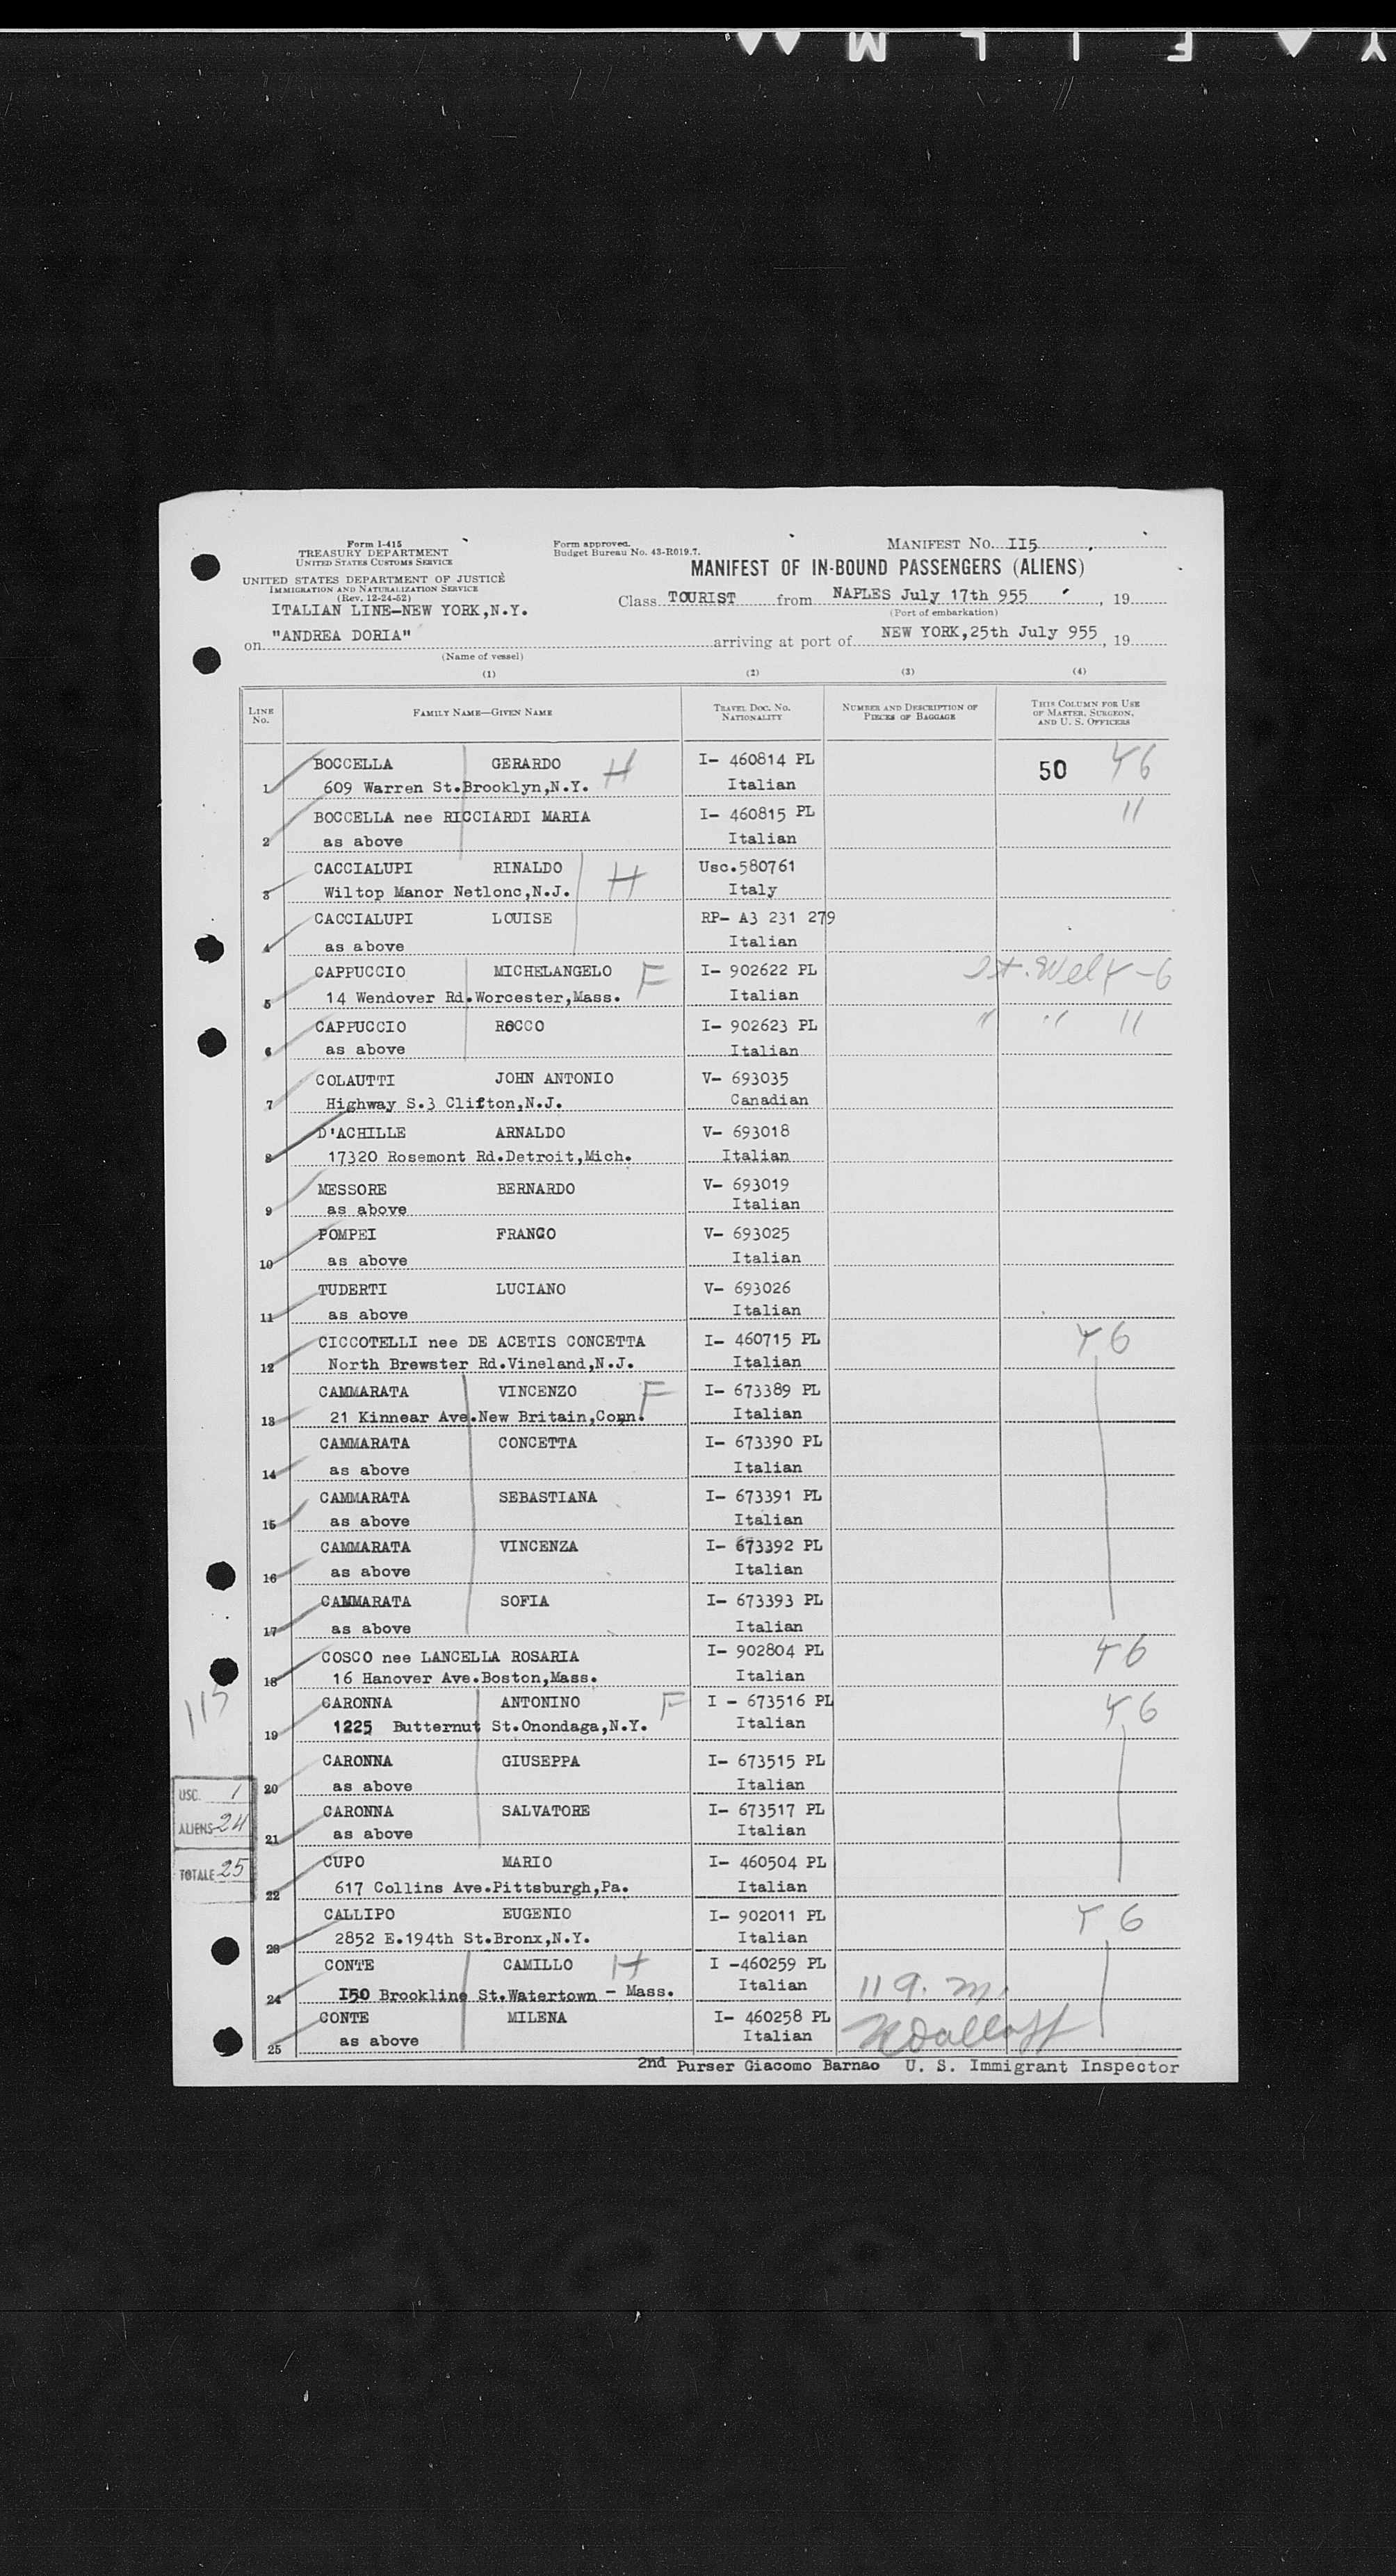 Y ♦ F I L M ♦♦
Form I-415
TREASURY DEPARTMENT
UNITED STATES CUSTOMS SERVICE
UNITED STATES DEPARTMENT OF JUSTICE
IMMIGRATION AND NATURALIZATION SERVICE
(Rev. 12-24-52)
ITALIAN LINE-NEW YORK,N.Y.
Form approved.
Budget Bureau No. 43-R019.7.
MANIFEST NO. II5
MANIFEST OF IN-BOUND PASSENGERS (ALIENS)
Class TOURIST from NAPLES July 17th 955, 19
(Port of embarkation)
on "ANDREA DORIA" arriving at port of NEW YORK,25th July 955, 19
(Name of vessel)
(1) (2) (3) (4)
LINE NO. FAMILY NAME—GIVEN NAME TRAVEL DOC. NO. NATIONALITY NUMBER AND DESCRIPTION OF PIECES OF BAGGAGE THIS COLUMN FOR USE OF MASTER, SURGEON, AND U. S. OFFICERS
BOCCELLA GERARDO H I- 460814 PL 50 46
1 609 Warren St.Brooklyn,N.Y. Italian
BOCCELLA nee RICCIARDI MARIA I- 460815 PL "
2 as above Italian
CACCIALUPI RINALDO H Usc.580761
3 Wiltop Manor Netlonc,N.J. Italy
CACCIALUPI LOUISE RP- A3 231 279
4 as above Italian
CAPPUCCIO MICHELANGELO F I- 902622 PL 4-6
5 14 Wendover Rd.Worcester,Mass. Italian
CAPPUCCIO ROCCO I- 902623 PL " " "
6 as above Italian
COLAUTTI JOHN ANTONIO V- 693035
7 Highway S.3 Clifton,N.J. Canadian
D'ACHILLE ARNALDO V- 693018
8 17320 Rosemont Rd.Detroit,Mich. Italian
MESSORE BERNARDO V- 693019
9 as above Italian
POMPEI FRANCO V- 693025
10 as above Italian
TUDERTI LUCIANO V- 693026
11 as above Italian
CICCOTELLI nee DE ACETIS CONCETTA I- 460715 PL 46
12 North Brewster Rd.Vineland,N.J. Italian
CAMMARATA VINCENZO F I- 673389 PL
13 21 Kinnear Ave.New Britain,Conn. Italian
CAMMARATA CONCETTA I- 673390 PL
14 as above Italian
CAMMARATA SEBASTIANA I- 673391 PL
15 as above Italian
CAMMARATA VINCENZA I- 673392 PL
16 as above Italian
CAMMARATA SOFIA I- 673393 PL
17 as above Italian
COSCO nee LANCELLA ROSARIA I- 902804 PL 46
18 16 Hanover Ave.Boston,Mass. Italian
115
CARONNA ANTONINO F I - 673516 PL 46
19 1225 Butternut St.Onondaga,N.Y. Italian
CARONNA GIUSEPPA I- 673515 PL
20 as above Italian
USC. 1
CARONNA SALVATORE I- 673517 PL
21 as above Italian
ALIENS 24
CUPO MARIO I- 460504 PL
TOTALE 25
22 617 Collins Ave.Pittsburgh,Pa. Italian
CALLIPO EUGENIO I- 902011 PL 46
23 2852 E.194th St.Bronx,N.Y. Italian
CONTE CAMILLO H I -460259 PL
24 I50 Brookline St.Watertown - Mass. Italian
CONTE MILENA I- 460258 PL
25 as above Italian
2nd Purser Giacomo Barnao U. S. Immigrant Inspector